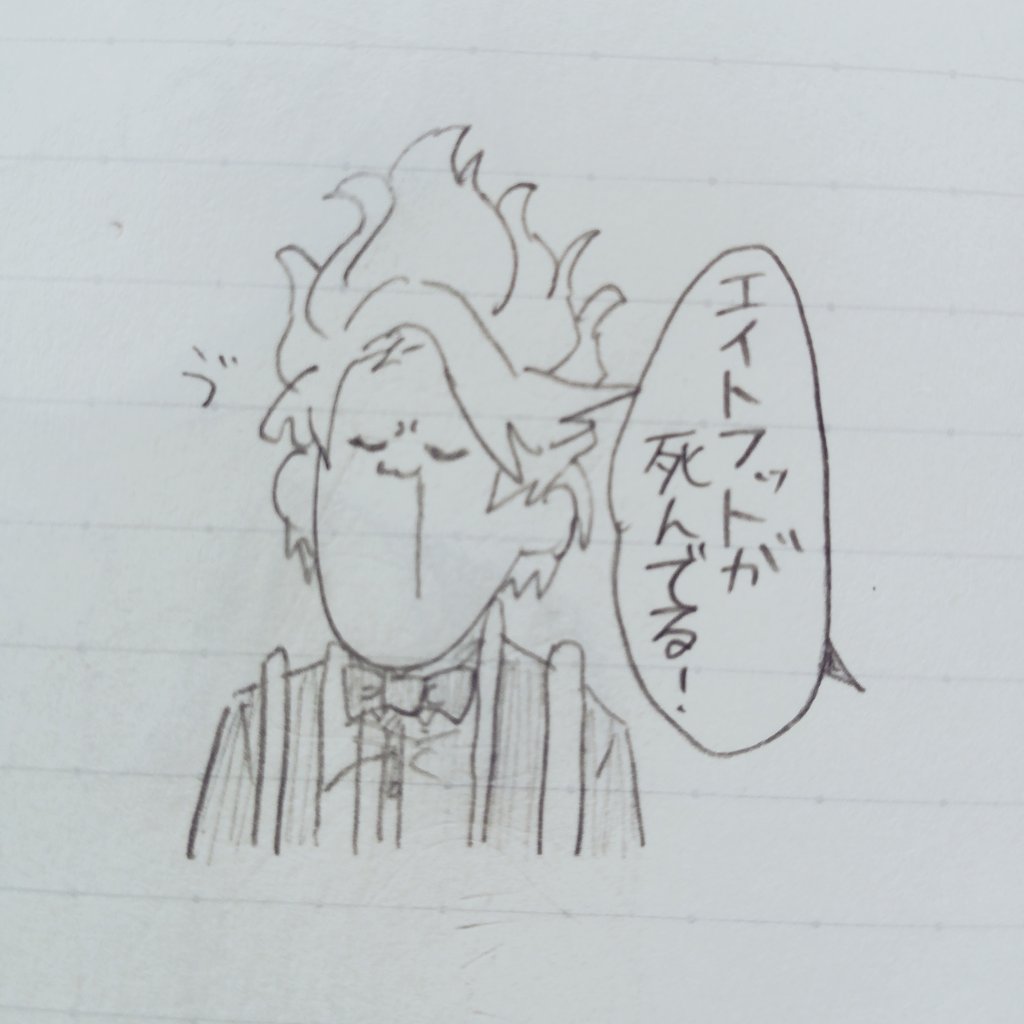 エイトフットが
死んでる!
ヴ